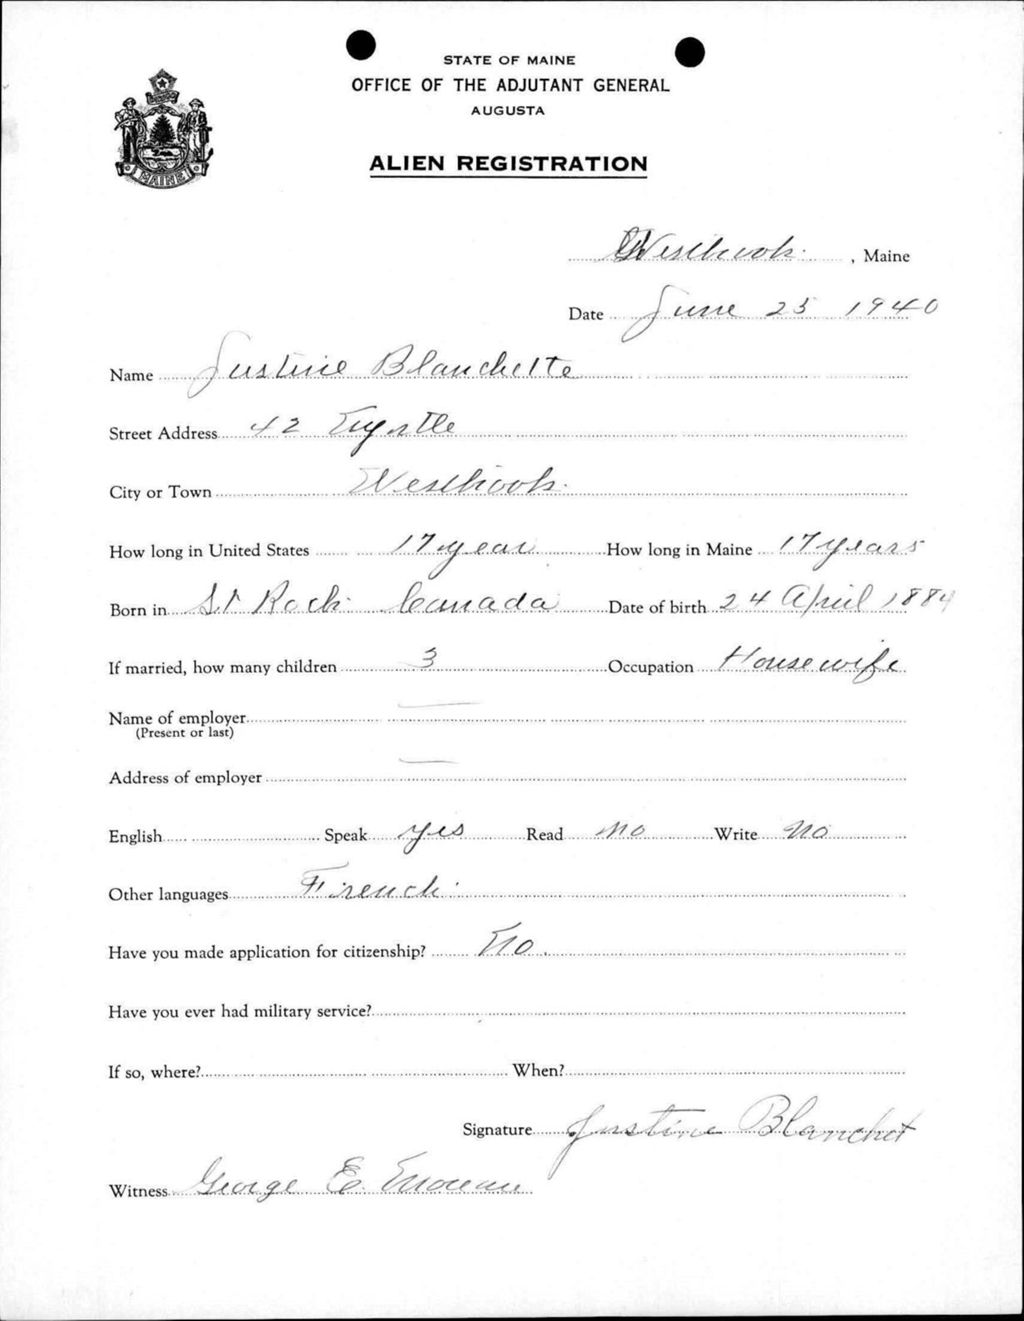 STATE OF MAINE
OFFICE OF THE ADJUTANT GENERAL
AUGUSTA
MAINE
ALIEN REGISTRATION
Westbrook , Maine
Date June 25 1940
Name Justine Blanchette
Street Address 42 Myrtle
City or Town Westbrook
How long in United States 17 year How long in Maine 17 years
Born in St Rock Canada Date of birth 24 April 1884
If married, how many children 3 Occupation Housewife
Name of employer
(Present or last)
Address of employer
English Speak yes Read no Write no
Other languages French
Have you made application for citizenship? No.
Have you ever had military service?
If so, where? When?
Signature Justine Blanchet
Witness George E. Moreau